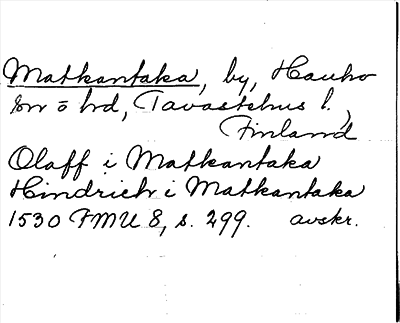 Matkantaka, by, Hauho
sn o hd, Tavastehus l.,
Finland
Olaff i Matkantaka
Hindrich i Matkantaka
1530 FMU 8, s. 299. avskr.